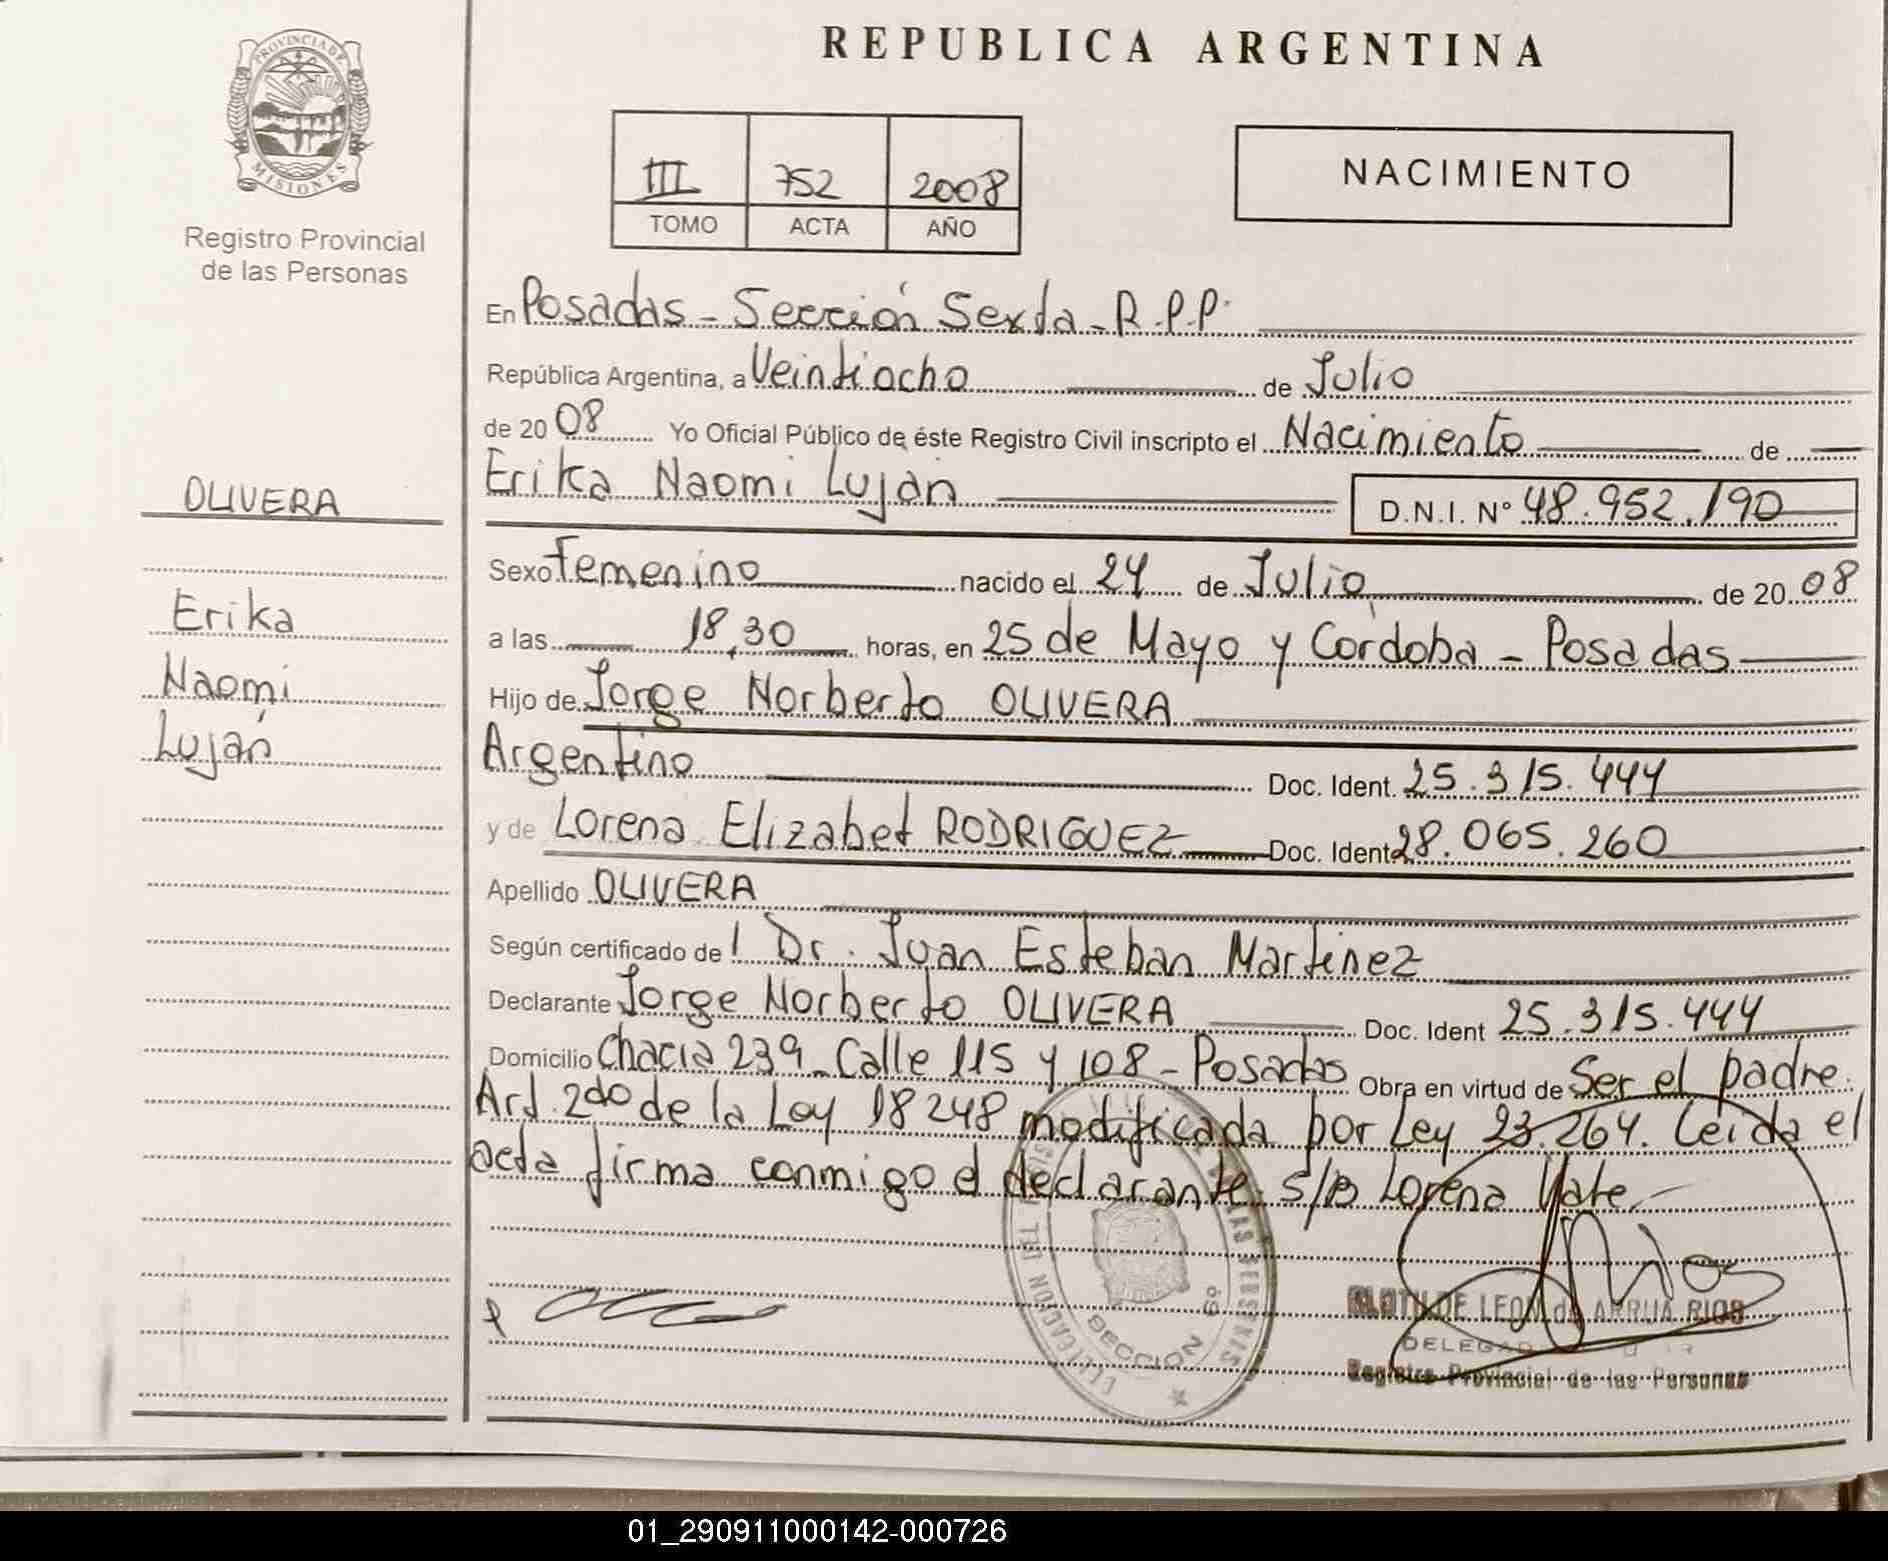 REPUBLICA ARGENTINA
PROVINCIA DE
MISIONES
Registro Provincial
de las Personas
III 752 2008
TOMO ACTA AÑO
NACIMIENTO
OLIVERA
Erika
Naomi
Luján
En Posadas - Sección Sexta - R.P.P.
República Argentina, a Veintiocho de Julio
de 20 08 Yo Oficial Público de éste Registro Civil inscripto el Nacimiento de
Erika Naomi Luján D.N.I. N° 48.952.190
Sexo Femenino nacido el 24 de Julio de 20 08
a las 18,30 horas, en 25 de Mayo y Córdoba - Posadas
Hijo de Jorge Norberto OLIVERA
Argentino Doc. Ident. 25.315.444
y de Lorena Elizabet RODRIGUEZ Doc. Ident 28.065.260
Apellido OLIVERA
Según certificado de l Dr. Juan Esteban Martinez
Declarante Jorge Norberto OLIVERA Doc. Ident 25.315.444
Domicilio Chacra 239 - Calle 115 y 108 - Posadas Obra en virtud de Ser el padre.
Art. 2do de la Ley 18248 modificada por Ley 23.264. Leída el
acta firma conmigo el declarante. s/B Lorena Vale.-
SECCION 6º
CLOTILDE LEON de ARRUA RIOS
Registro Provincial de las Personas
01_290911000142-000726